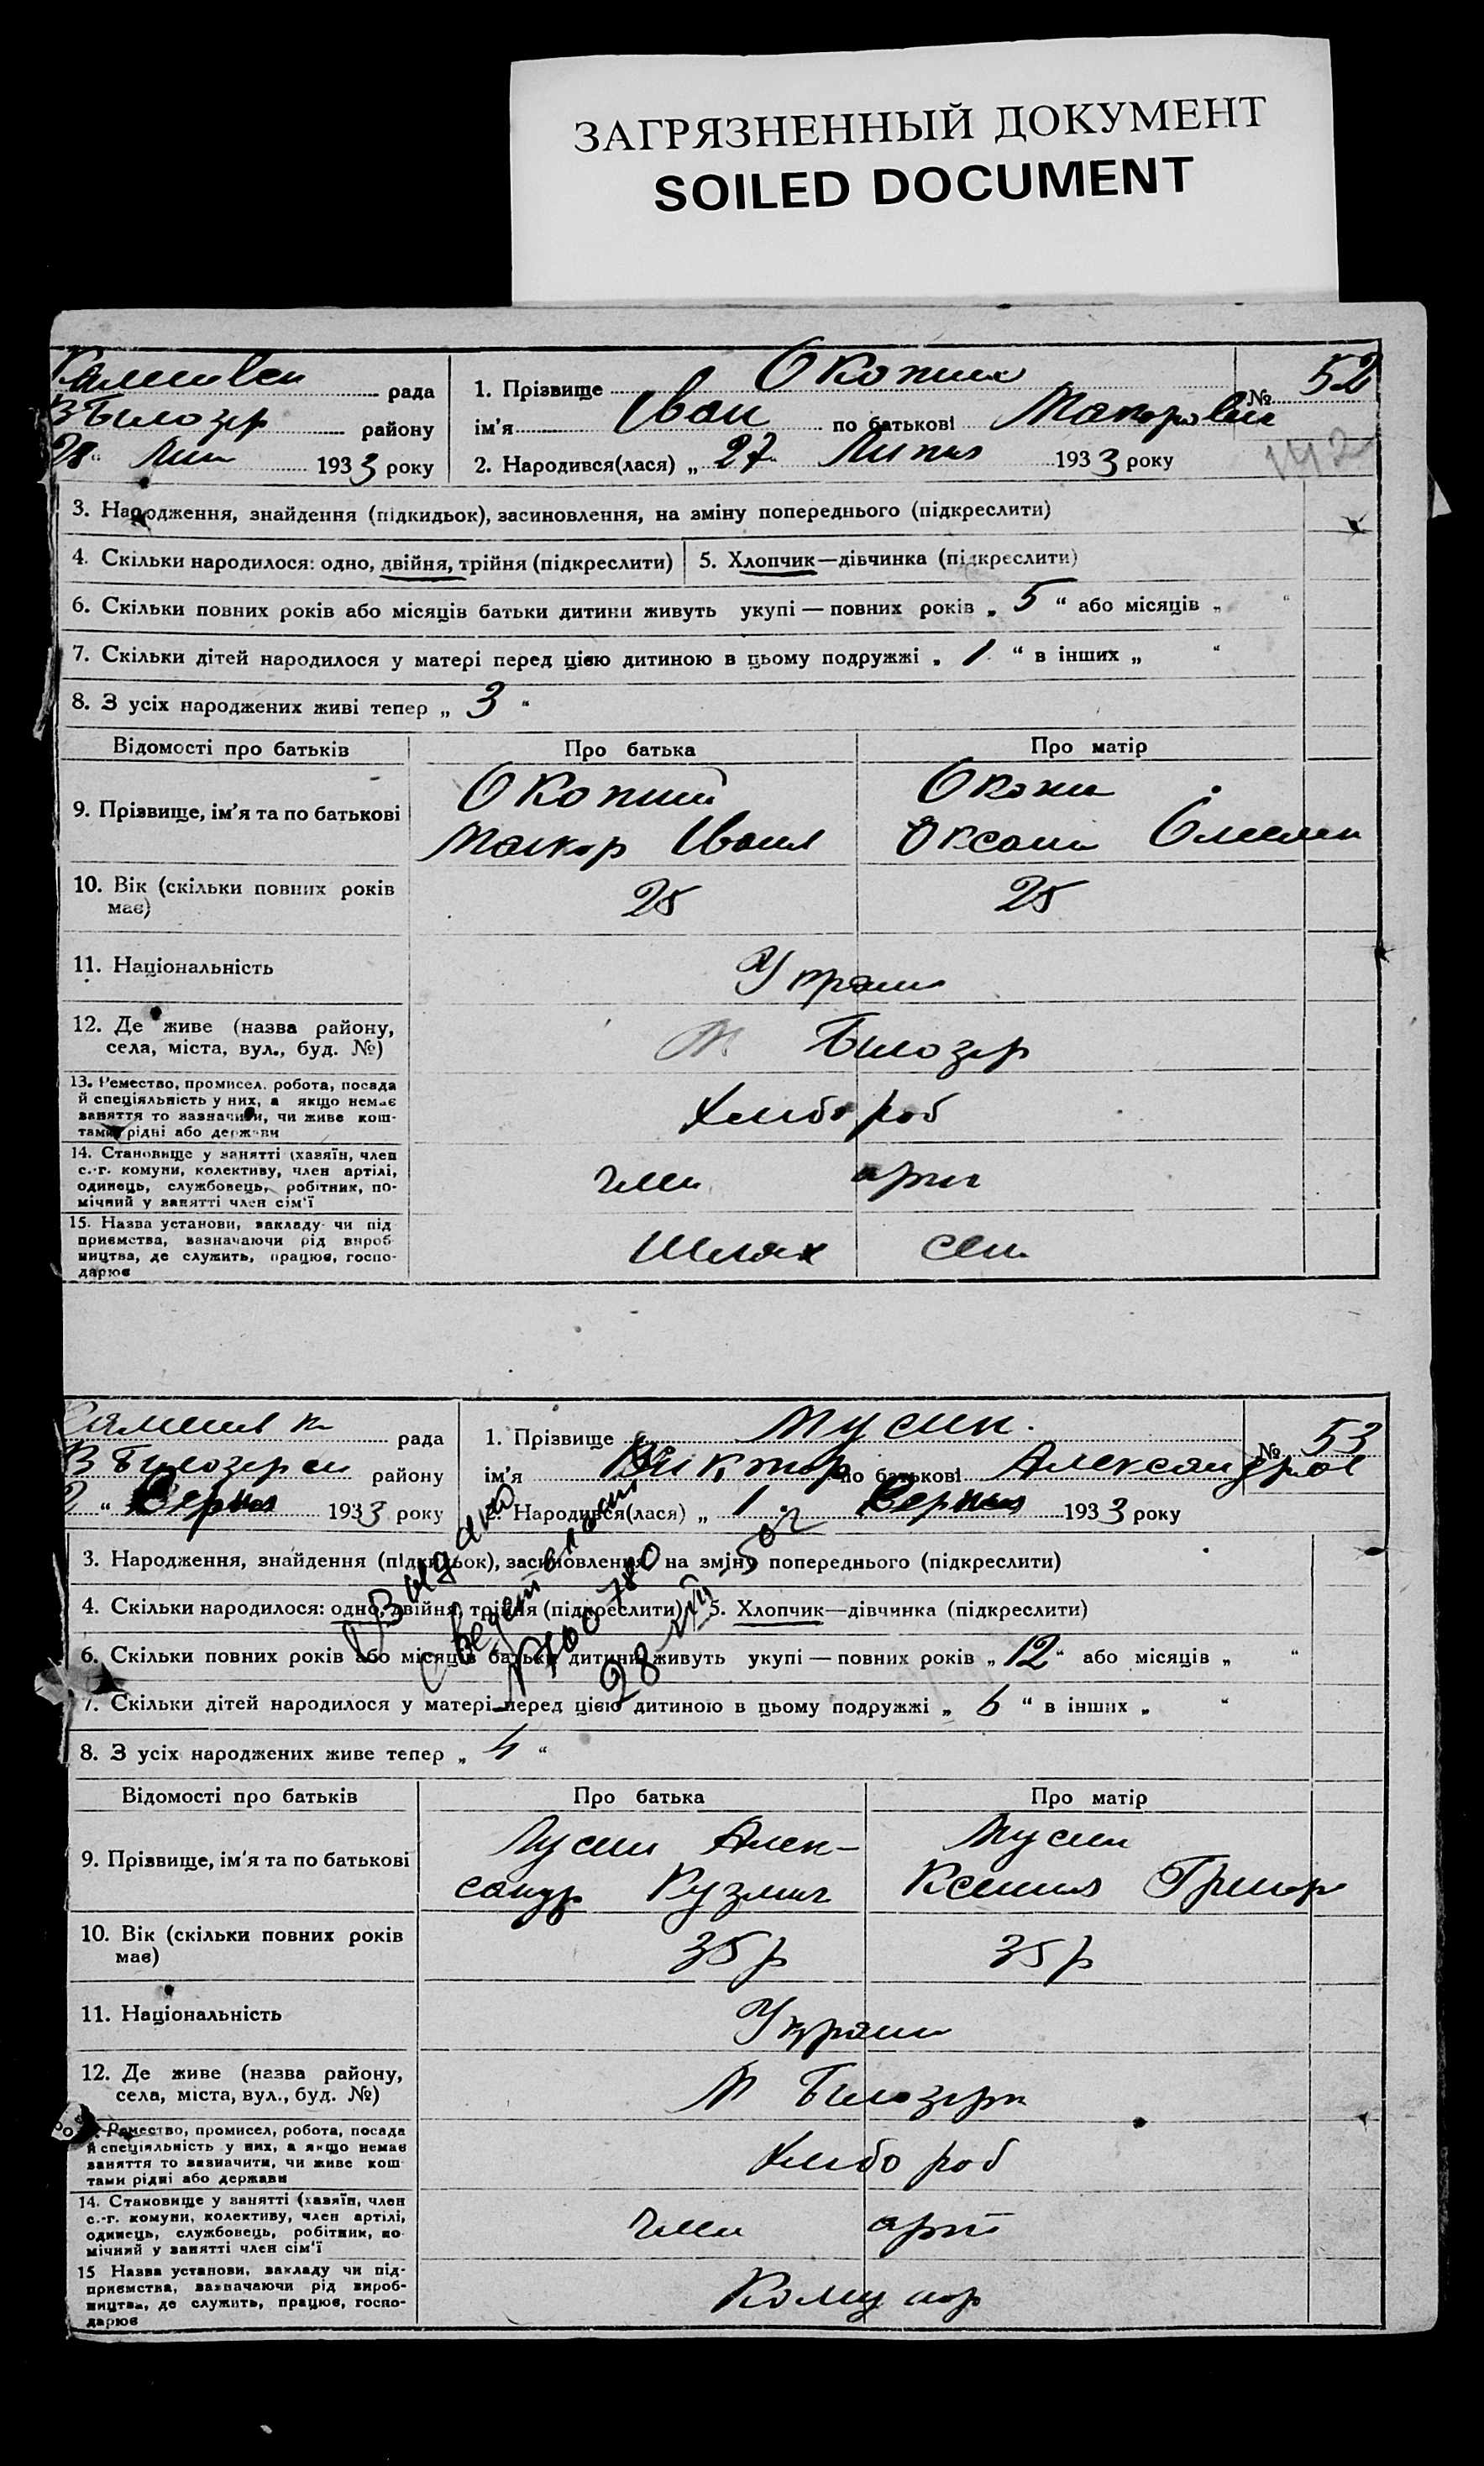 ЗАГРЯЗНЕННЫЙ ДОКУМЕНТ
SOILED DOCUMENT
рада
В Билозер району
28 " Лип 1933 року
1. Прізвище
№ 52
ім'я Иван по батькові
142
2. Народився(лася) „ 27 Липня 1933 року
3. Народження, знайдення (підкидьок), засиновлення, на зміну попереднього (підкреслити)
4. Скільки народилося: одно, двійня, трійня (підкреслити)
5. Хлопчик—дівчинка (підкреслити)
6. Скільки повних років або місяців батьки дитини живуть укупі — повних років „ 5 “ або місяців „ “
7. Скільки дітей народилося у матері перед цією дитиною в цьому подружжі „ 1 “ в інших „ “
8. З усіх народжених живі тепер „ 3 “
Відомості про батьків Про батька Про матір
9. Прізвище, ім'я та по батькові
10. Вік (скільки повних років
має)
25 25
11. Національність
12. Де живе (назва району,
села, міста, вул., буд. №)
Билозер
13. Ремество, промисел, робота, посада
й спеціяльність у них, а якщо немає
заняття то зазначити, чи живе кош-
тами рідні або держави
Хлибороб
14. Становище у занятті (хазяїн, член
с.-г. комуни, колективу, член артілі,
одинець, службовець, робітник, по-
мічний у занятті член сім'ї
член арт
15. Назва установи, закладу чи під
приємства, зазначаючи рід вироб
ництва, де служить, працює, госпо-
дарює
Шлях
рада
району
2 " Серпня 1933 року
1. Прізвище Мусин
№ 53
ім'я Виктор по батькові Александров
2. Народився(лася) „ 1 Серпня 1933 року
3. Народження, знайдення (підкидьок), засиновлення, на зміну попереднього (підкреслити)
4. Скільки народилося: одно, двійня, трійня (підкреслити)
5. Хлопчик—дівчинка (підкреслити)
6. Скільки повних років або місяців батьки дитини живуть укупі — повних років „ 12 “ або місяців „ “
7. Скільки дітей народилося у матері перед цією дитиною в цьому подружжі „ 6 “ в інших „ “
8. З усіх народжених живе тепер „ 4 “
Відомості про батьків Про батька Про матір
9. Прізвище, ім'я та по батькові
Мусин Алек-
сандр Кузмич
Мусин
Ксения Григор
10. Вік (скільки повних років
має)
35 р 35 р
11. Національність
12. Де живе (назва району,
села, міста, вул., буд. №)
М Билозерк
Ремество, промисел, робота, посада
й спеціяльність у них, а якщо немає
заняття то зазначити, чи живе кош-
тами рідні або держави
Хлибороб
14. Становище у занятті (хазяїн, член
с.-г. комуни, колективу, член артілі,
одинець, службовець, робітник, по-
мічний у занятті член сім'ї
член арт
15 Назва установи, закладу чи під-
приємства, зазначаючи рід вироб-
ництва, де служить, працює, госпо-
дарює